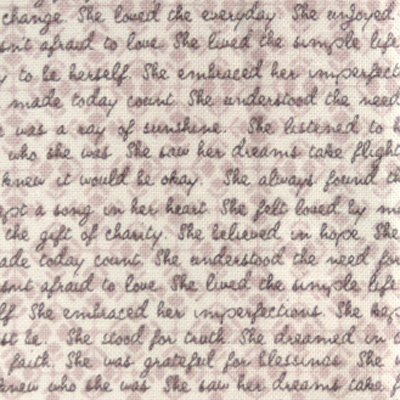 change. She loved the everyday. She enjoyed
asnt afraid to love. She lived the simple life
to be herself. She embraced her imperfect
made today count. She understood the need
was a ray of sunshine. She listened to h
who she was. She saw her dreams take flight
knew it would be okay. She always found th
kept a song in her heart. She felt loved by m
the gift of charity. She believed in hope. She
ade today count. She understood the need for
asnt afraid to love. She lived the simple life
lf. She embraced her imperfections. She kep
st be. She stood for truth. She dreamed in c
faith. She was grateful for blessings. She w
knew who she was. She saw her dreams take f